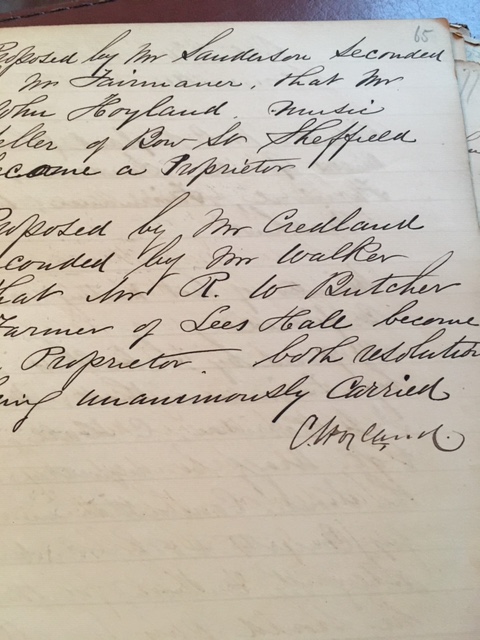 65
roposed by Mr Sanderson Seconded
Mr Fairmaner, that Mr
ohn Hoyland. Music
eller of Bow St Sheffield
ecome a Proprietor
roposed by Mr Credland
econded by Mr Walker
hat Mr R. W Butcher
Farmer of Lees Hall become
Proprietor. both resolution
eing unanimously Carried